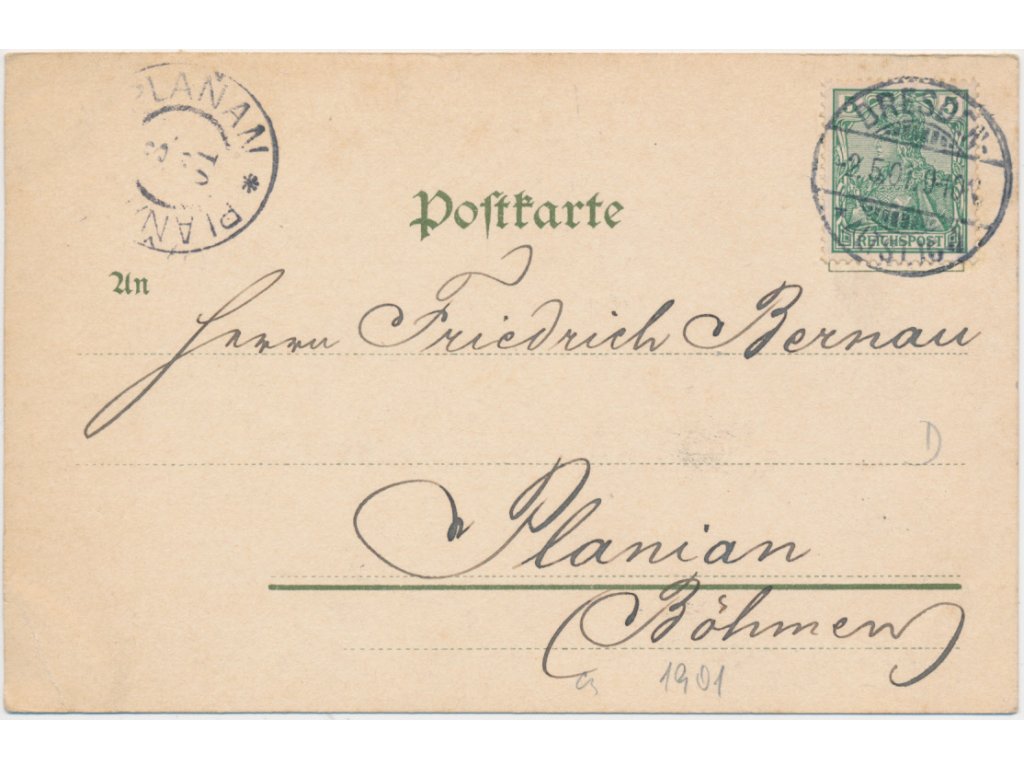 PLAŇAN * PLAŇ
DRESDEN-
-2.5.01. 9-10
REICHSPOST
Postkarte
An
Herrn Friedrich Bernau
D
Planian
(Böhmen)
1901